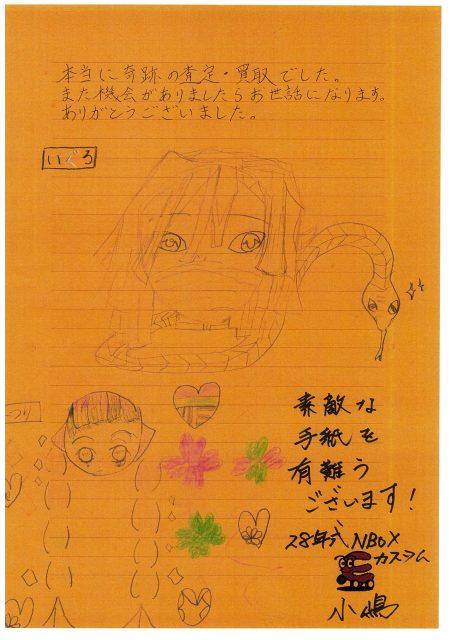 本当に奇跡の査定・買取でした。
また機会がありましたらお世話になります。
ありがとうございました。
いぐろ
素敵な
手紙を
有難う
ございます！
28年式 NBOX
カスタム
小嶋